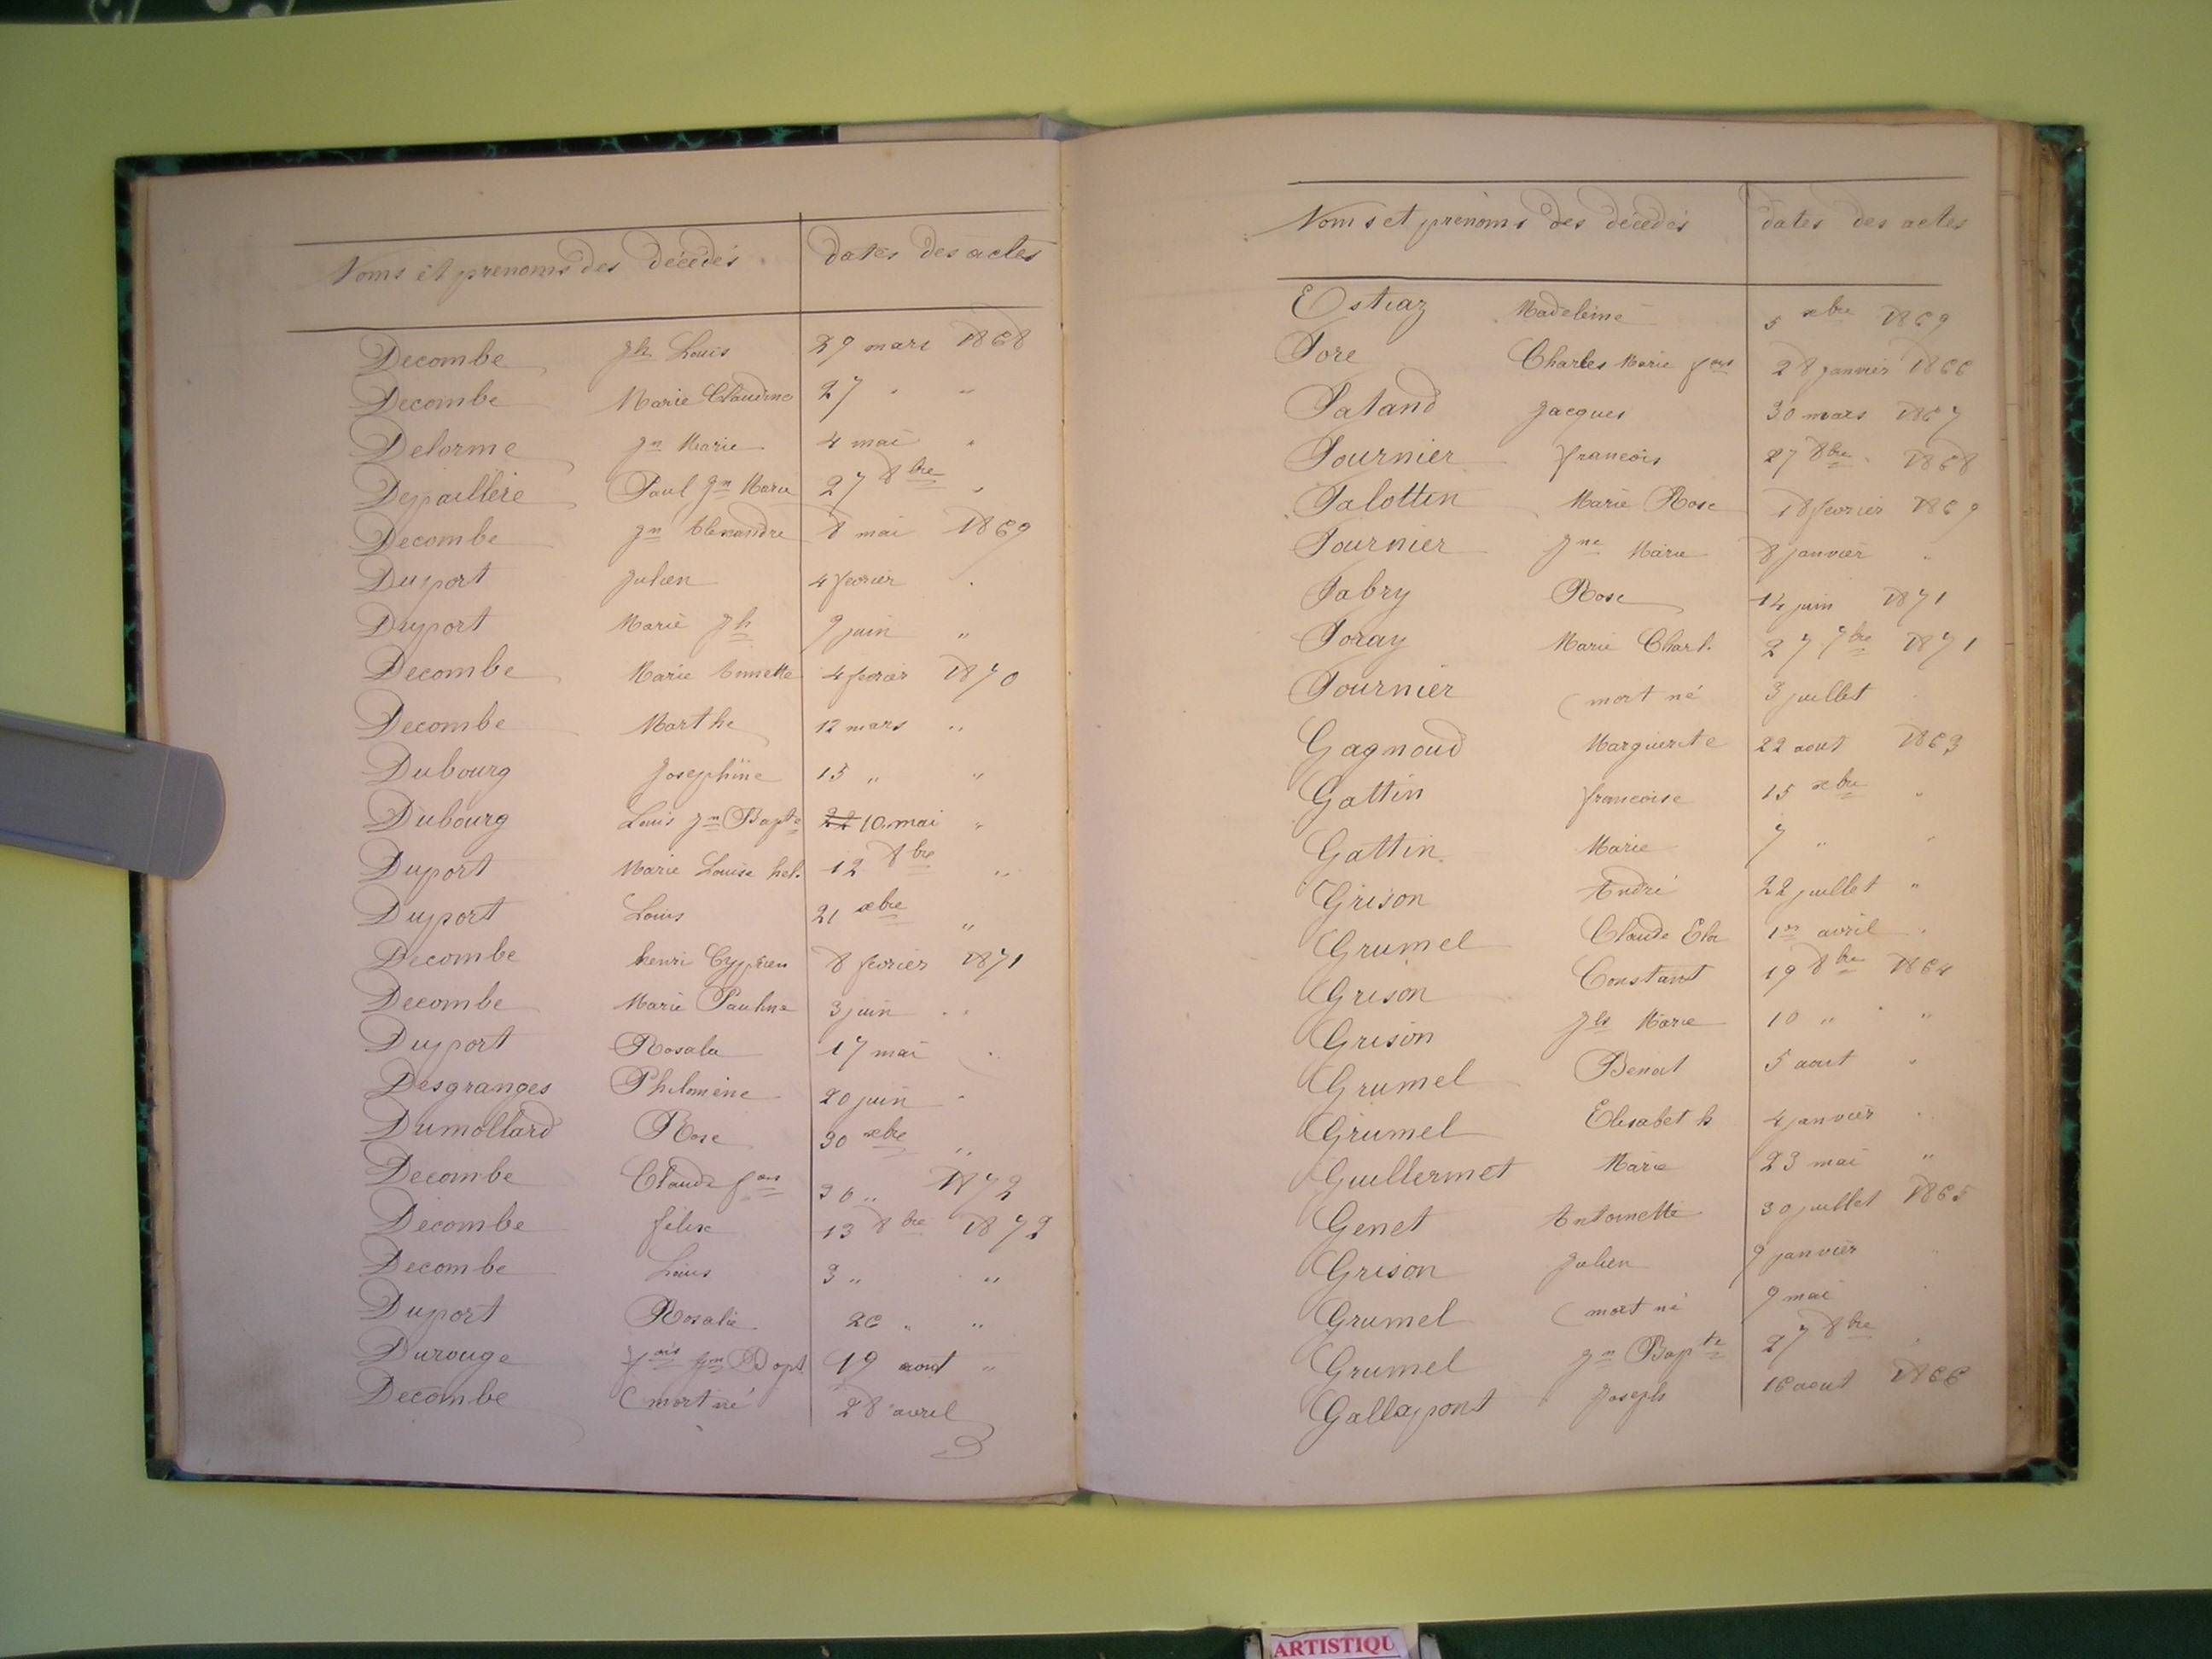 Noms et prenoms des décédés dates des actes
Decombe Jh Louis 29 mars 1868
Decombe Marie Claudine 27 " "
Delorme Jn Marie 4 mai "
Depaillere Paul Jn Marie 27 8bre "
Decombe Jn Alexandre 8 mai 1869
Duport Julien 4 fevrier "
Duport Marie Jh 9 juin "
Decombe Marie Annette 4 fevrier 1870
Decombe Marthe 12 mars "
Dubourg Josephine 15 " "
Dubourg Louis Jn Bapte 22 10 mai "
Duport Marie Louise hel. 12 8bre "
Duport Louis 21 xbre "
Decombe henri Cyprien 8 fevrier 1871
Decombe Marie Pauline 3 juin "
Duport Rosala 17 mai "
Desgranges Philomène 20 juin "
Dumollard Rose 30 xbre "
Decombe Claude fois 30 " 1872
Decombe félix 13 8bre 1872
Decombe Louis 3 " "
Duport Rosalie 26 " "
Durouge fois Jn Bapt 19 aout "
Decombe mort né 28 avril
Noms et prénoms des décédés dates des actes
Estraz Madeleine 5 xbre 1869
Fore Charles Marie fois 28 janvier 1866
Fatand Jacques 30 mars 1867
Fournier francois 27 8bre 1868
Falottin Marie Rose 18 fevrier 1869
Fournier Jne Marie 8 janvier "
Fabry Rose 14 juin 1871
Foray Marie Charl. 27 7bre 1871
Fournier mort né 3 juillet
Gagnoud Marguerite 22 aout 1863
Gattin francoise 15 xbre "
Gattin Marie 7 " "
Grison André 22 juillet "
Grumel Claude Eln 1er avril "
Grison Constant 19 8bre 1864
Grison Jh Marie 10 " "
Grumel Benoit 5 aout "
Grumel Elisabeth 4 janvier "
Guillermet Marie 23 mai "
Genet Antoinette 30 juillet 1865
Grison Julien 9 janvier "
Grumel mort né 9 mai "
Grumel Jn Bapte 27 8bre "
Gallapont Joseph 16 aout 1866
ARTISTIQU